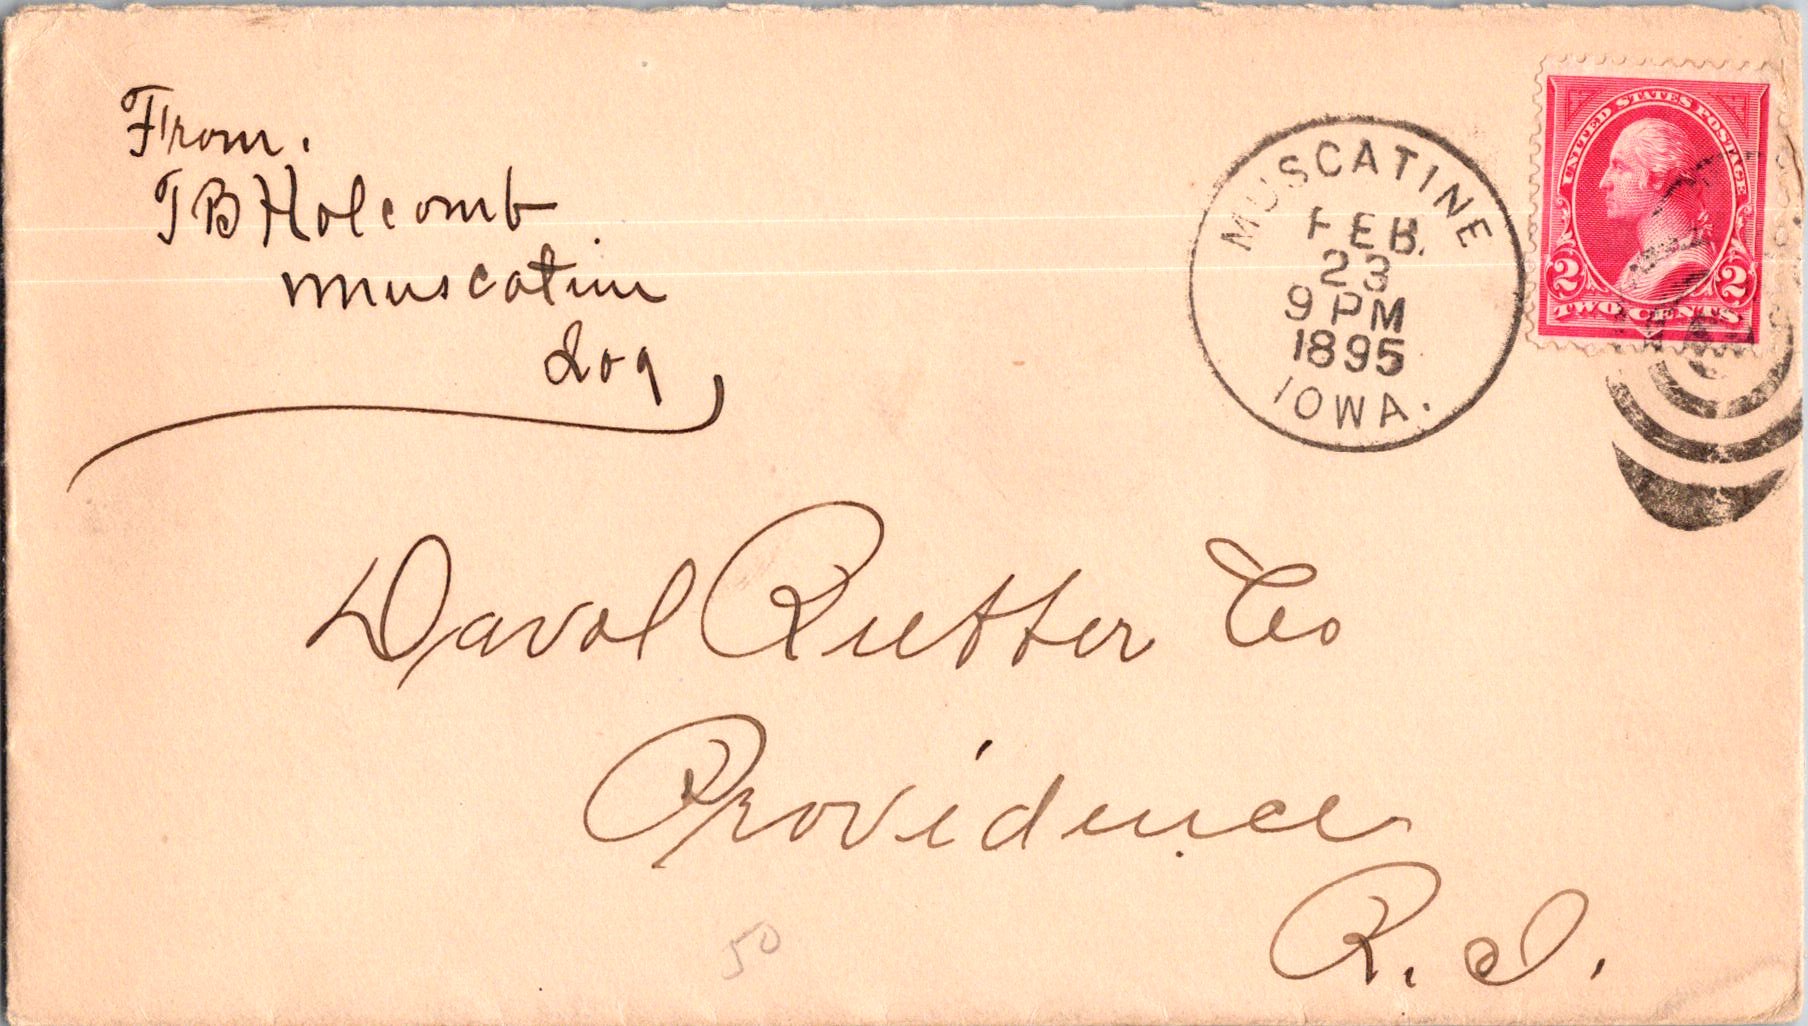 From.
T B Holcomb
Muscatine
Ioa
MUSCATINE
FEB.
23
9 PM
1895
IOWA.
UNITED STATES POSTAGE
2 2
TWO CENTS
Davol Rutter Co
Providence
R. I.
50